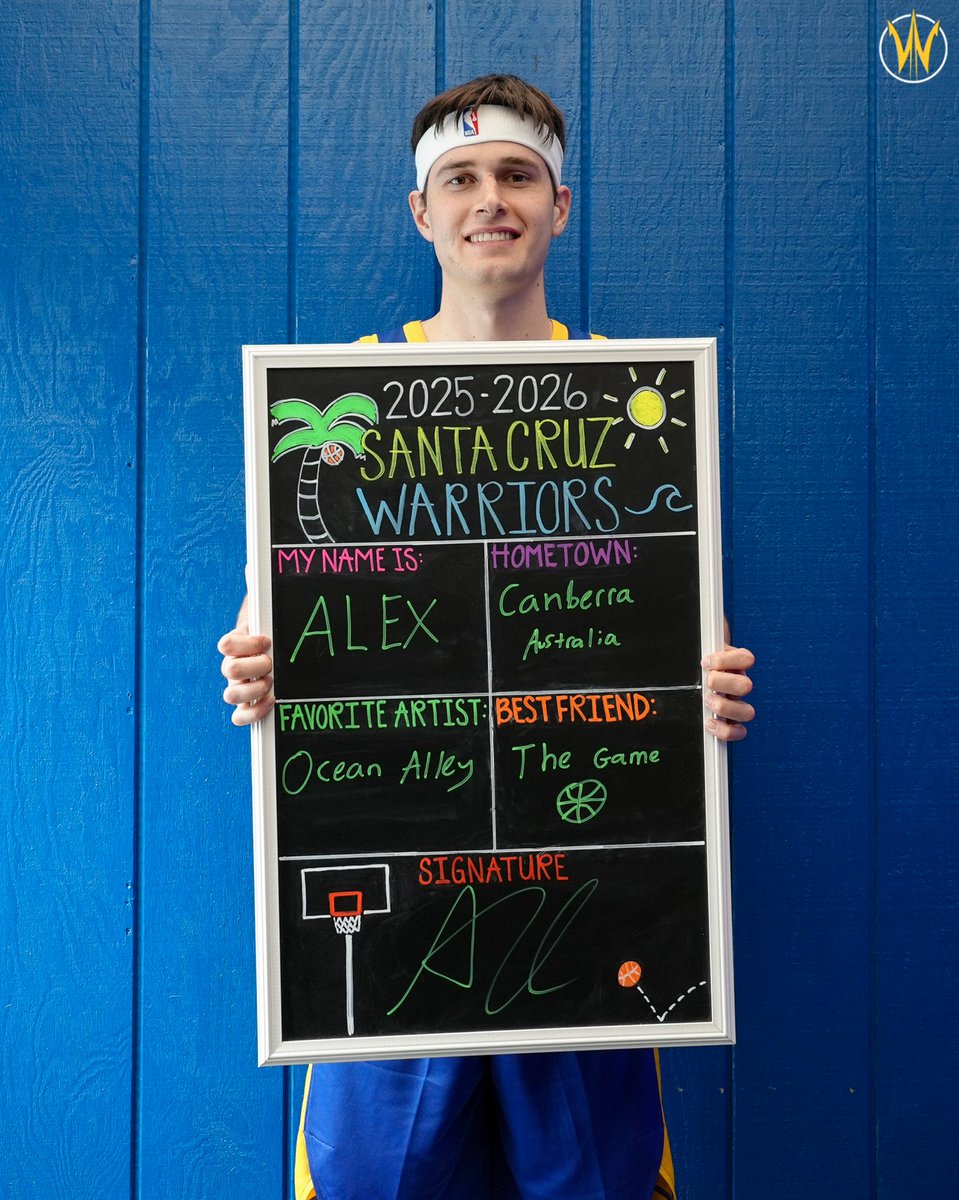 NBA
2025-2026
SANTA CRUZ
WARRIORS
MY NAME IS:
ALEX
HOMETOWN:
Canberra
Australia
FAVORITE ARTIST:
Ocean Alley
BEST FRIEND:
The Game
SIGNATURE